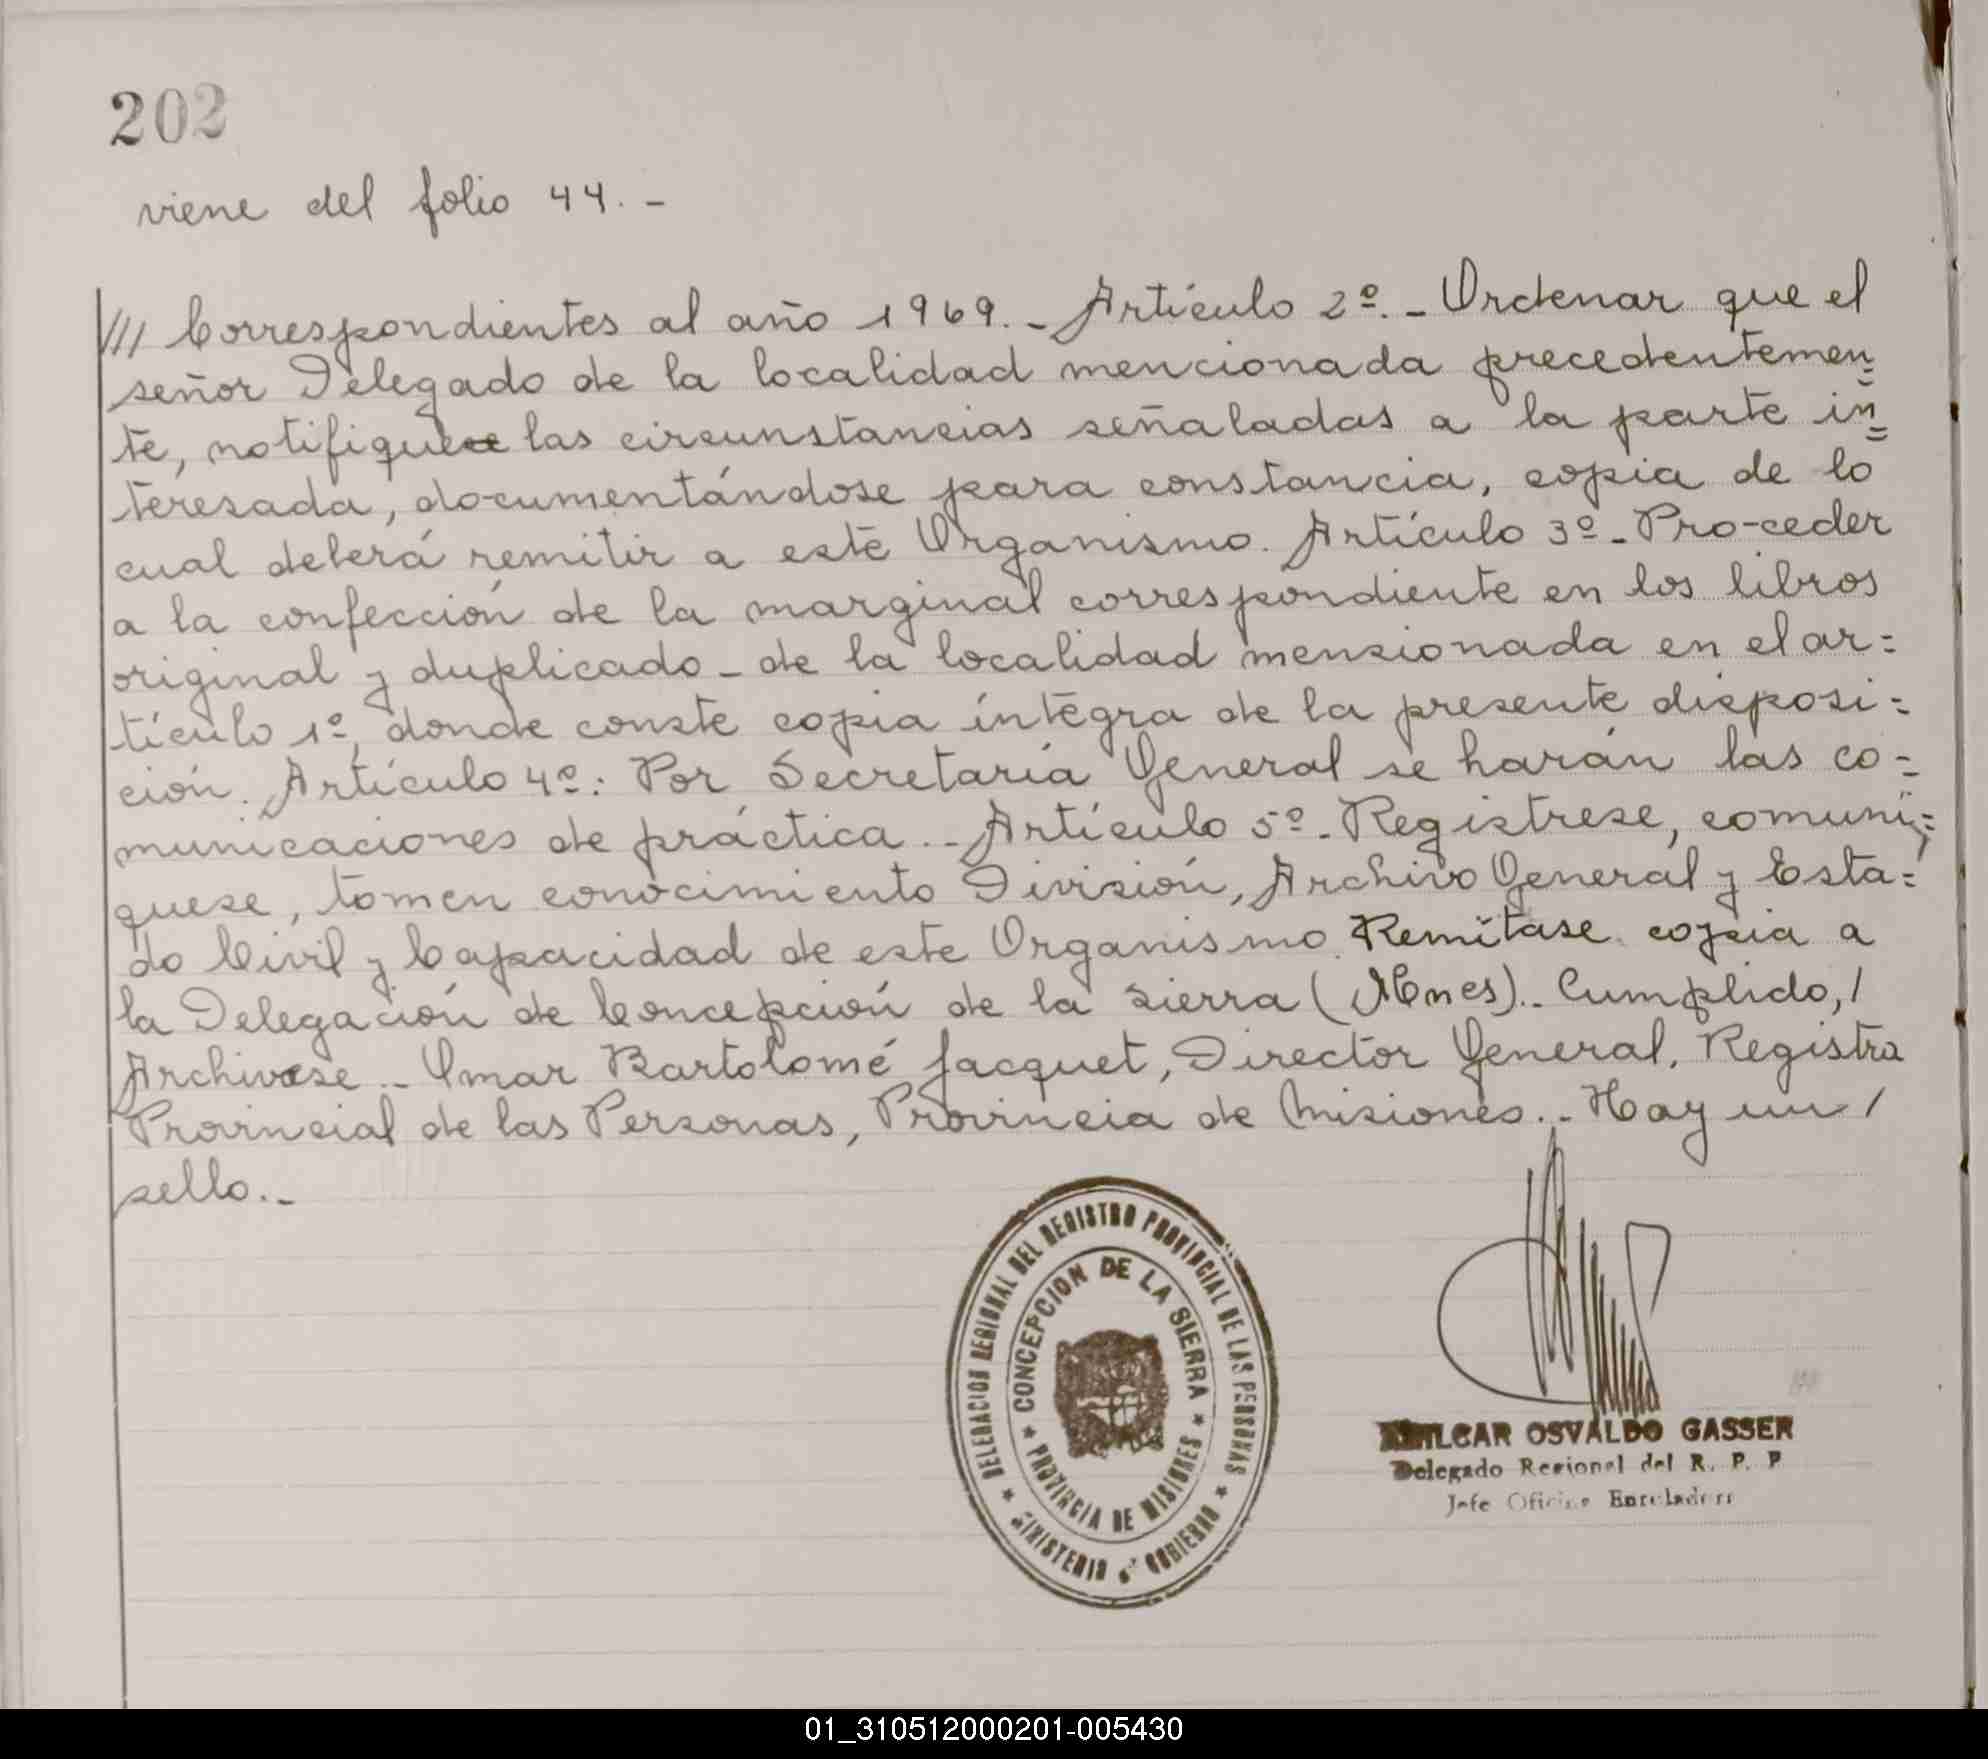 202
viene del folio 44.-
/// Correspondientes al año 1969.- Artículo 2º.- Ordenar que el
señor Delegado de la localidad mencionada precedentemen=
te, notifique las circunstancias señaladas a la parte in=
teresada, documentándose para constancia, copia de lo
cual deberá remitir a este Organismo. Artículo 3º- Pro-ceder
a la confección de la marginal correspondiente en los libros
original y duplicado- de la localidad mensionada en el ar=
tículo 1º, donde conste copia íntegra de la presente disposi=
ción. Artículo 4º: Por Secretaría General se harán las co=
municaciones de práctica..- Artículo 5º- Registrese, comuní=
quese, tomen conocimiento División, Archivo General y Esta=
do Civil y Capacidad de este Organismo. Remítase copia a
la Delegación de Concepción de la Sierra (Mnes).- Cumplido, /
Archivese.- Omar Bartolomé Jacquet, Director General, Registro
Provincial de las Personas, Provincia de Misiones..- Hay un /
sello.-
DELEGACION REGIONAL DEL REGISTRO PROVINCIAL DE LAS PERSONAS
★ MINISTERIO DE GOBIERNO ★
CONCEPCION DE LA SIERRA
★ PROVINCIA DE MISIONES ★
AMILCAR OSVALDO GASSER
Delegado Regional del R. P. P
Jefe Oficina Enroladora
01_310512000201-005430